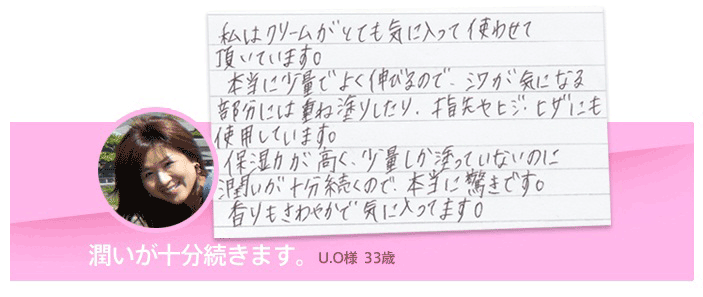 私はクリームがとても気に入って使わせて
頂いています。
本当に少量でよく伸びるので、シワが気になる
部分には重ね塗りしたり、指先やヒジ・ヒザにも
使用しています。
保湿力が高く、少量しか塗っていないのに
潤いが十分続くので、本当に驚きです。
香りもさわやかで気に入ってます。
潤いが十分続きます。U.O様 33歳